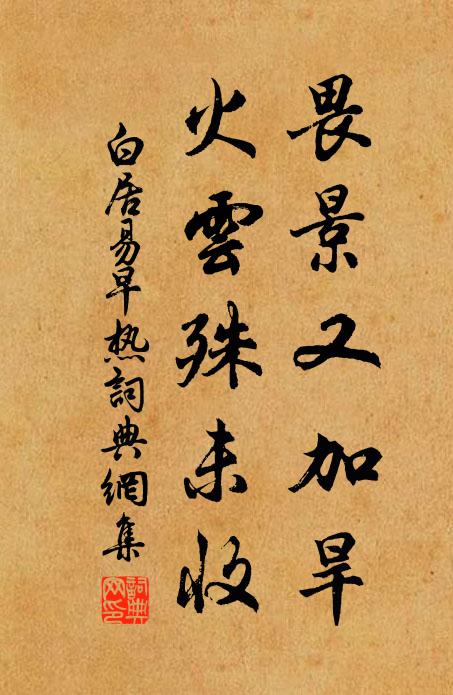 畏景又加旱
火雲殊未收
白居易早热詞典網集
詞典
网印